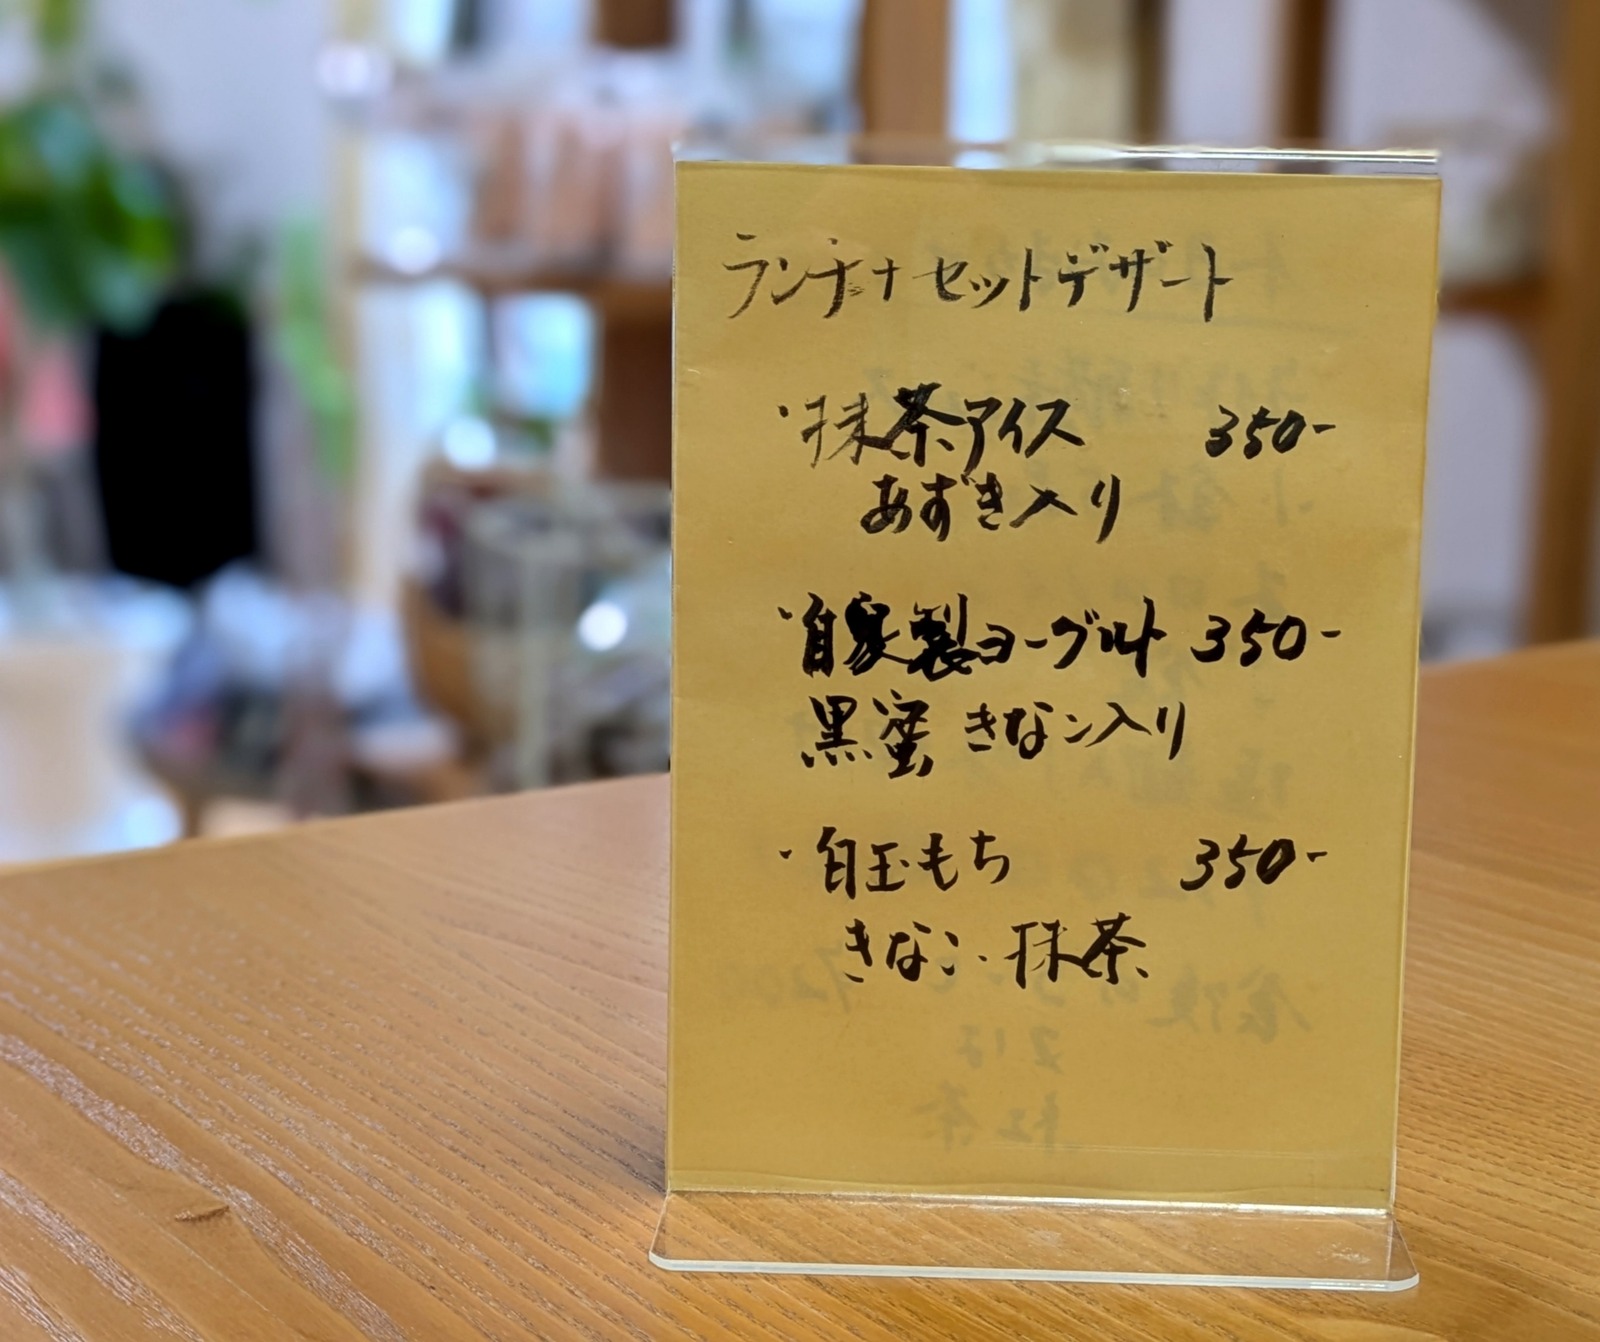 ランチ+セットデザート
・抹茶アイス 350-
あずき入り
・自家製ヨーグルト 350-
黒蜜きなこ入り
・白玉もち 350-
きなこ、抹茶